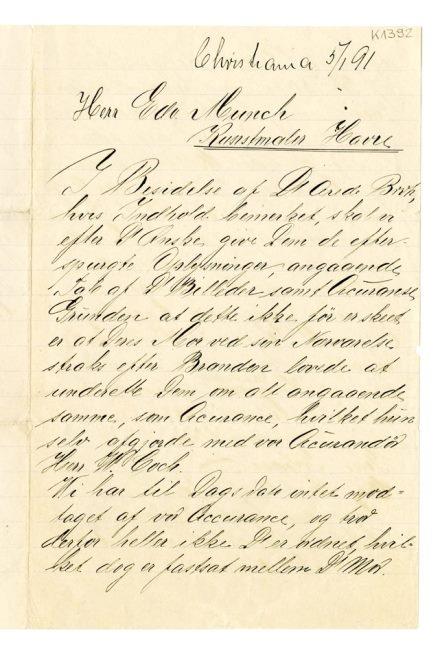 K1392
Christiania 5/1 91
Herr Edv Munch
Kunstmaler Havre
I Besidelse af D' ærede Brev,
hvis Indhold bemerket, skal vi
efter D' Ønske, give Dem de efter-
spurgte Oplysninger, angaaende
Tab af D' Billeder samt Accurance
Grunden at dette ikke før er skeet
er at Deres Mor ved sin Nærværelse
straks efter Branden lovede at
underette Dem om alt angaaende
samme, som Accurance, hvilket hun
selv afgjorde med vor Accurandør
Herr W. Coch.
Vi har til Dags Dato intet mod-
taget af vor Accurance, og tror
derfor heller ikke D' er ordnet, hvil-
ket dog er fastsat mellem D' Mor.